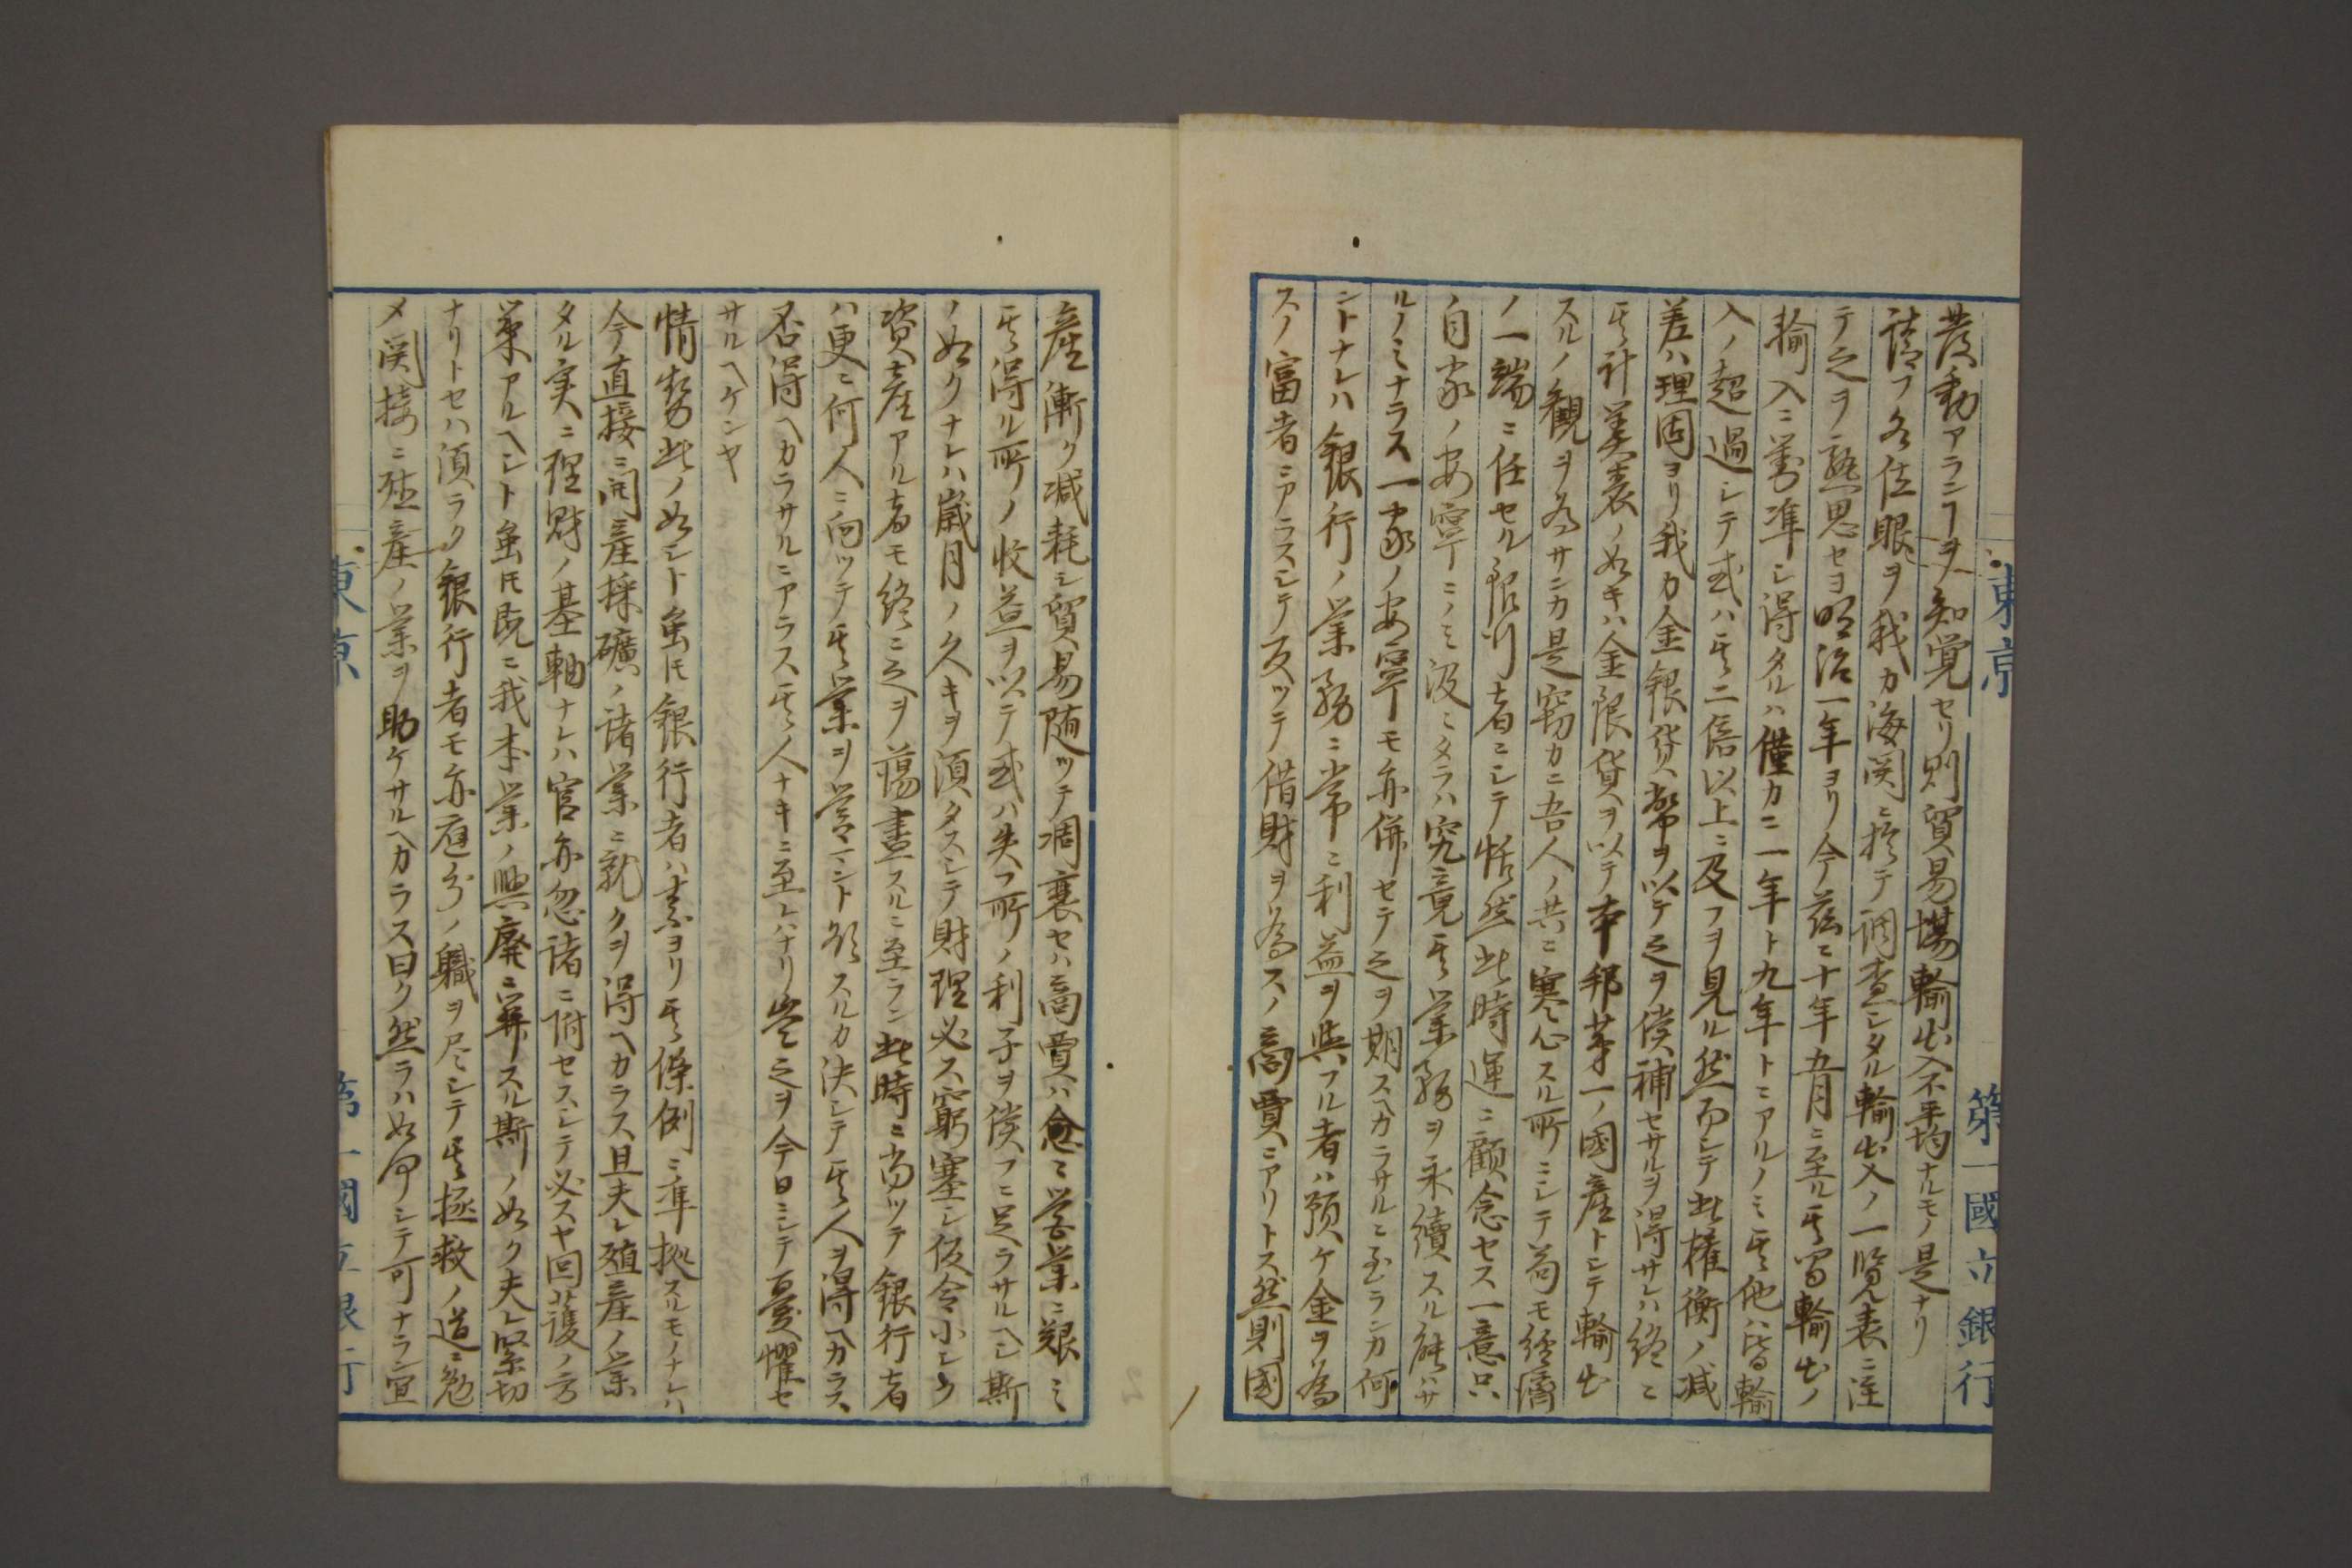 東京 第一國立銀行
発動アランヿヲ知覚セリ則貿易場輸出入不平均ナルモノ是ナリ
請フ各位眼ヲ我カ海関ニ於テ調査シタル輸出入ノ一覧表ニ注
テ之ヲ熟思セヨ明治一年ヨリ今茲ニ十年五月ニ至ル其間輸出ノ
輸入ニ勢準シ得タルハ僅カニ一年ト九年トニアルノミ其他ハ皆輸
入ノ超過シテ或ハ其二倍以上ニ及フヲ見ル然而シテ此権衡ノ減
差ハ理固ヨリ我カ金銀貨幣ヲ以テ之ヲ償補セサルヲ得サレハ終ニ
其計算表ノ如キハ金銀貨ヲ以テ本邦第一ノ國産トシテ輸出
スルノ観ヲ為サンカ是窃カニ吾人ノ共ニ寒心スル所ニシテ苟モ経済
ノ一端ニ任セル銀行者ニシテ恬然此時運ニ顧念セス一意只
自家ノ安寧ニノミ汲ミタラハ究竟其業務ヲ永續スル能ハサ
ルノミナラス一家ノ安寧モ亦併セテ之ヲ期スヘカラサルニ至ランカ何
ントナレハ銀行ノ業務ニ常ニ利益ヲ與フル者ハ預ケ金ヲ為
スノ富者ニアラスシテ反ツテ借財ヲ為スノ商賈ニアリトス然則國
産漸ク減耗シ貿易随ツテ凋衰セハ商賈ハ愈ミ営業ニ艱ミ
其得ル所ノ收益ヲ以テ或ハ失フ所ノ利子ヲ償フニ足ラサルヘシ斯
ノ如クナレハ歳月ノ久キヲ須タスシテ財理必ス窮塞シ仮令小シク
資産アル者モ終ニ之ヲ蕩盡スルニ至ラン此時ニ当ツテ銀行者
ハ更ニ何人ニ向ツテ其業ヲ営ミント欲スルカ決シテ其人ヲ得ヘカラス
否得ヘカラサルニアラス其人ナキニ至レハナリ豈之ヲ今日ニシテ憂懼セ
サルヘケンヤ
情勢此ノ如シト雖𪜈銀行者ハ素ヨリ其條例ニ準拠スルモノナレハ
今直接ニ開産採礦ノ諸業ニ就クヲ得ヘカラス且夫レ殖産ノ業
タル実ニ理財ノ基軸ナレハ官亦忽諸ニ附セスシテ必スヤ回護ノ方
策アルヘシト雖𪜈既ニ我本業ノ興廃ニ葬スル斯ノ如ク夫レ緊切
ナリトセハ須ラク銀行者モ亦應分ノ職ヲ尽シテ其拯救ノ道ニ勉
メ関接ニ殖産ノ業ヲ助ケサルヘカラス曰ク然ラハ如何シテ可ナラン宜
東京 第一國立銀行